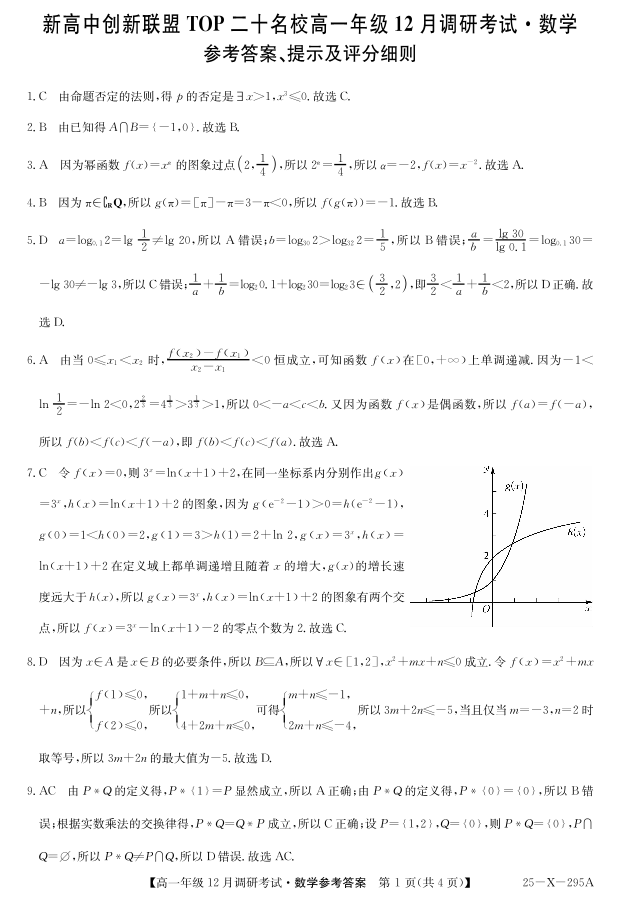 新高中创新联盟 TOP 二十名校高一年级 12 月调研考试·数学
参考答案、提示及评分细则
1. C 由命题否定的法则,得 p 的否定是∃x>1,x³≤0. 故选 C.
2. B 由已知得 A∩B={-1,0}. 故选 B.
3. A 因为幂函数 f(x)=xᵅ 的图象过点(2,1/4),所以 2ᵅ=1/4,所以 α=-2,f(x)=x⁻². 故选 A.
4. B 因为 π∈∁_R Q,所以 g(π)=[π]-π=3-π<0,所以 f(g(π))=-1. 故选 B.
5. D a=log₀.₁2=lg 1/2≠lg 20,所以 A 错误;b=log₃₀2>log₃₂2=1/5,所以 B 错误;a/b=lg 30/lg 0.1=log₀.₁30=
-lg 30≠-lg 3,所以 C 错误;1/a+1/b=log₂0.1+log₂30=log₂3∈(3/2,2),即3/2<1/a+1/b<2,所以 D 正确. 故
选 D.
6. A 由当 0≤x₁<x₂ 时,(f(x₂)-f(x₁))/(x₂-x₁)<0 恒成立,可知函数 f(x)在[0,+∞)上单调递减. 因为-1<
ln 1/2=-ln 2<0,2^(2/3)=4^(1/3)>3^(1/3)>1,所以 0<-a<c<b. 又因为函数 f(x)是偶函数,所以 f(a)=f(-a),
所以 f(b)<f(c)<f(-a),即 f(b)<f(c)<f(a). 故选 A.
7. C 令 f(x)=0,则 3ˣ=ln(x+1)+2,在同一坐标系内分别作出g(x)
=3ˣ,h(x)=ln(x+1)+2 的图象,因为 g(e⁻²-1)>0=h(e⁻²-1),
g(0)=1<h(0)=2,g(1)=3>h(1)=2+ln 2,g(x)=3ˣ,h(x)=
ln(x+1)+2 在定义域上都单调递增且随着 x 的增大,g(x)的增长速
度远大于h(x),所以 g(x)=3ˣ,h(x)=ln(x+1)+2 的图象有两个交
点,所以 f(x)=3ˣ-ln(x+1)-2 的零点个数为 2. 故选 C.
y
g(x)
4
h(x)
2
O
8. D 因为 x∈A 是 x∈B 的必要条件,所以 B⊆A,所以∀x∈[1,2],x²+mx+n≤0 成立. 令 f(x)=x²+mx
+n,所以{f(1)≤0, f(2)≤0, 所以{1+m+n≤0, 4+2m+n≤0, 可得{m+n≤-1, 2m+n≤-4, 所以 3m+2n≤-5,当且仅当 m=-3,n=2 时
取等号,所以 3m+2n 的最大值为-5. 故选 D.
9. AC 由 P*Q 的定义得,P*{1}=P 显然成立,所以 A 正确;由 P*Q 的定义得,P*{0}={0},所以 B 错
误;根据实数乘法的交换律得,P*Q=Q*P 成立,所以 C 正确;设 P={1,2},Q={0},则 P*Q={0},P∩
Q=∅,所以 P*Q≠P∩Q,所以 D 错误. 故选 AC.
【高一年级 12 月调研考试·数学参考答案 第 1 页(共 4 页)】 25-X-295A